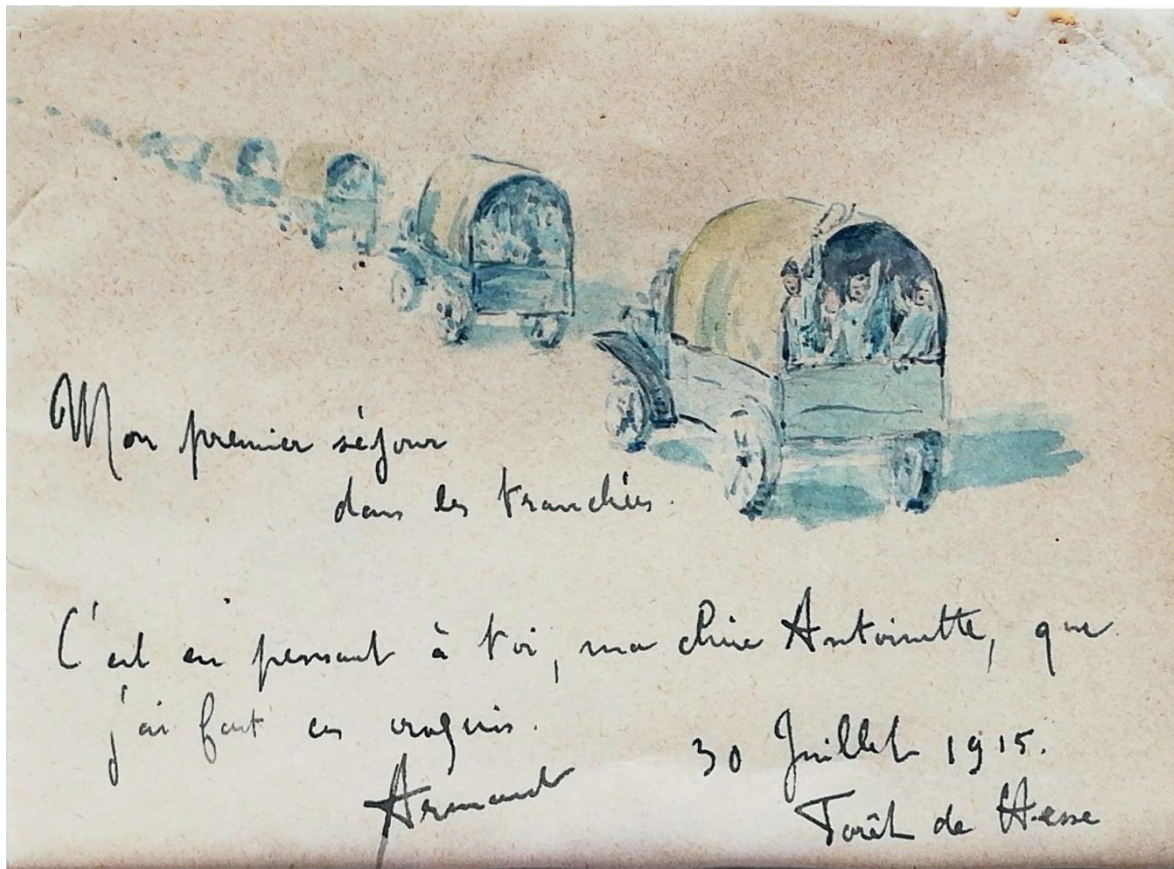 Mon premier séjour
dans les tranchées.
C'est en pensant à toi, ma chère Antoinette, que
j'ai fait ces croquis.
Armand
30 Juillet 1915.
Forêt de Hesse